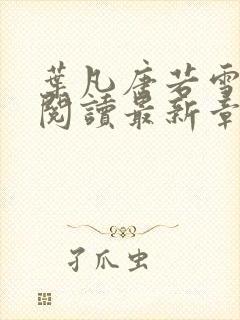 葉凡唐若雪
閱讀最新章
孑爪虫